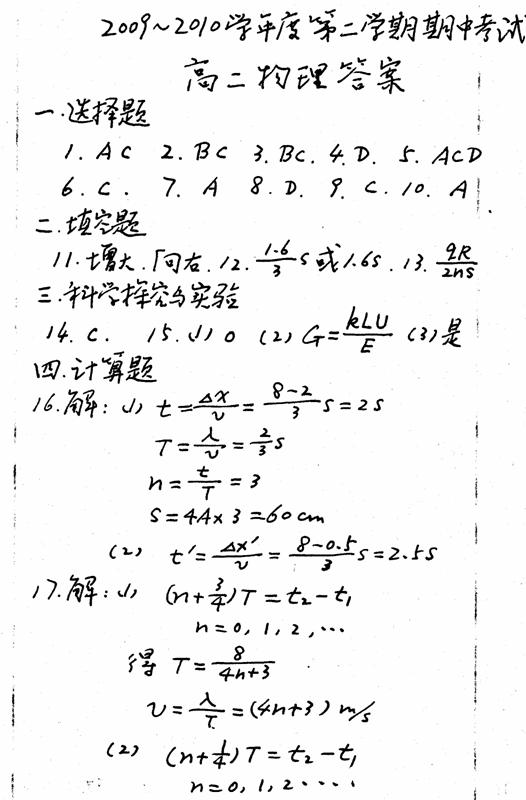 2009~2010学年度第二学期期中考试
高二物理答案
一.选择题
1. AC 2. BC 3. BC. 4. D. 5. ACD
6. C. 7. A 8. D. 9. C. 10. A
二.填空题
11.增大.向右. 12. 1.6/3 s或1.6s. 13. qR/2ns
三.科学探究与实验
14. C. 15. (1) 0 (2) G=kLU/E (3)是
四.计算题
16.解: (1) t=Δx/v=8-2/3 s=2s
T=λ/v=2/3 s
n=t/T=3
S=4A×3=60cm
(2) t'=Δx'/v=8-0.5/3 s=2.5s
17.解: (1) (n+3/4)T=t₂-t₁
n=0, 1, 2, …
得 T=8/4n+3
v=λ/T=(4n+3) m/s
(2) (n+1/4)T=t₂-t₁
n=0, 1, 2 ....